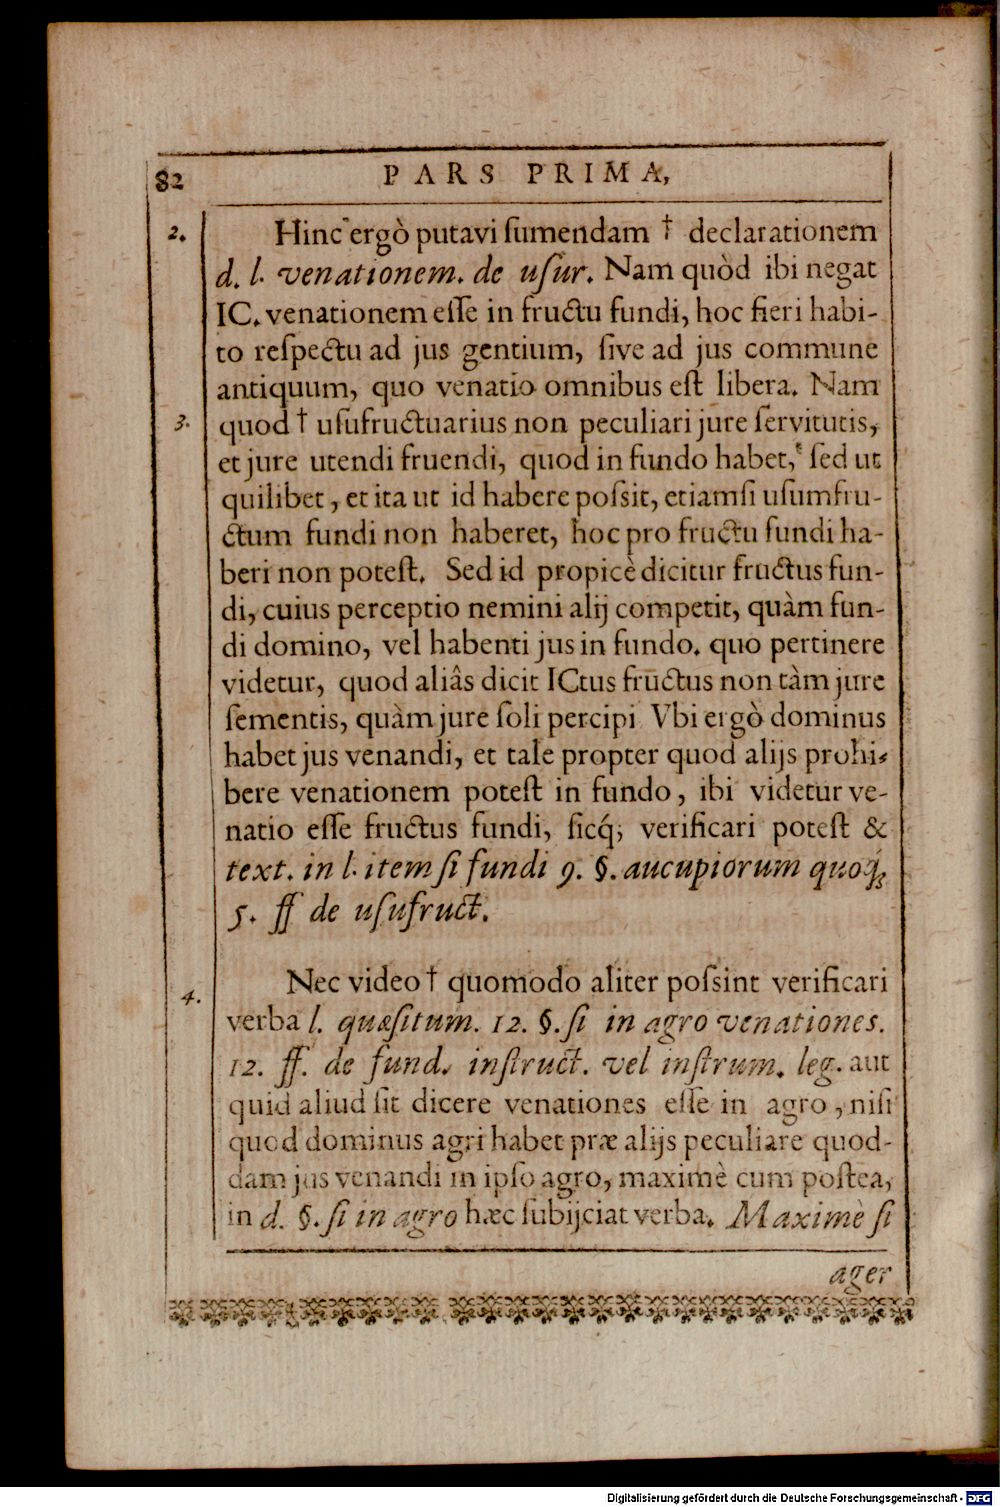 82 PARS PRIMA,
2. Hinc ergò putavi ſumendam † declarationem
d. l. venationem. de uſur. Nam quòd ibi negat
IC. venationem eſſe in fructu fundi, hoc fieri habi-
to reſpectu ad jus gentium, ſive ad jus commune
antiquum, quo venatio omnibus eſt libera. Nam
3. quod † uſufructuarius non peculiari jure ſervitutis,
et jure utendi fruendi, quod in fundo habet, ſed ut
quilibet, et ita ut id habere poſsit, etiamſi uſumfru-
ctum fundi non haberet, hoc pro fructu fundi ha-
beri non poteſt. Sed id propicè dicitur fructus fun-
di, cuius perceptio nemini alij competit, quàm fun-
di domino, vel habenti jus in fundo. quo pertinere
videtur, quod aliâs dicit ICtus fructus non tàm jure
ſementis, quàm jure ſoli percipi Vbi ergò dominus
habet jus venandi, et tale propter quod alijs prohi-
bere venationem poteſt in fundo, ibi videtur ve-
natio eſſe fructus fundi, ſicq́; verificari poteſt &
text. in l. item ſi fundi 9. §. aucupiorum quoq́;
5. ff de uſufruct.
4. Nec video † quomodo aliter poſsint verificari
verba l. quæſitum. 12. §. ſi in agro venationes.
12. ff. de fund. inſtruct. vel inſtrum. leg. aut
quid aliud ſit dicere venationes eſſe in agro, niſi
quod dominus agri habet præ alijs peculiare quod-
dam jus venandi in ipſo agro, maximè cum poſtea,
in d. §. ſi in agro hæc ſubijciat verba. Maximè ſi
ager
Digitalisierung gefördert durch die Deutsche Forschungsgemeinschaft - DFG